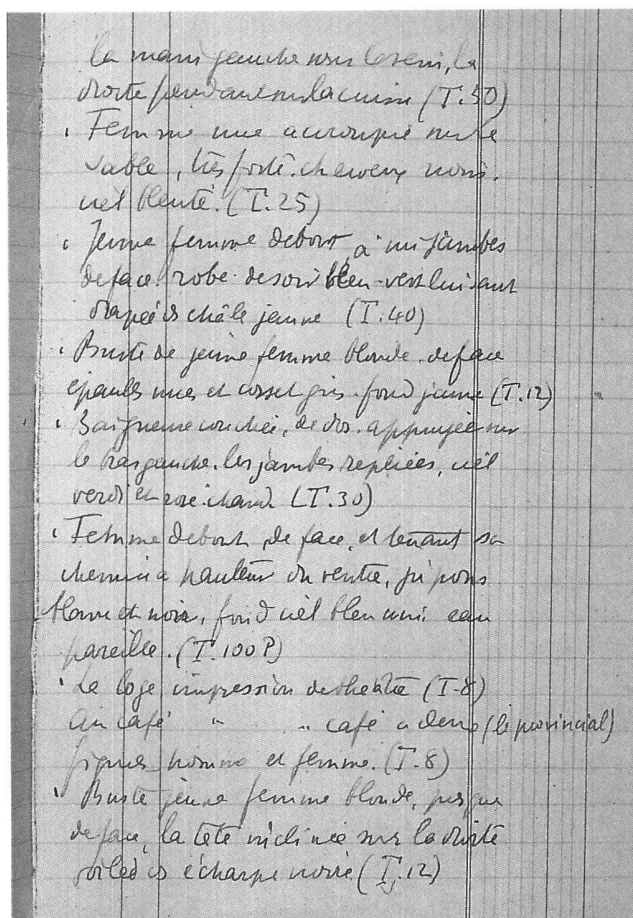 la main gauche sous le sein, la
droite pendant sur la cuisse (T.50)
. Femme nue accroupie sur le
sable, très forte. cheveux noirs.
ciel bleuté. (T.25)
. Jeune femme debout, à mi jambes
de face. robe de soir bleu-vert luisant
drapée ds châle jaune (T.40)
. Buste de jeune femme blonde. de face
épaules nues et corset gris. fond jaune (T.12)
. Baigneuse couchée, de dos. appuyée sur
le bras gauche. les jambes repliées, ciel
verdi et rose chaud (T.30)
. Femme debout, de face, et tenant sa
chemise à hauteur du ventre, jupons
blanc et noir, fond ciel bleu uni. eau
pareille. (T.100P)
. La loge impression de théâtre (T.8)
Au café " .. café à deux (le provincial)
figures homme et femme. (T.8)
. Buste jeune femme blonde, presque
de face, la tête inclinée sur la droite
voilée ds écharpe noire (T.12)